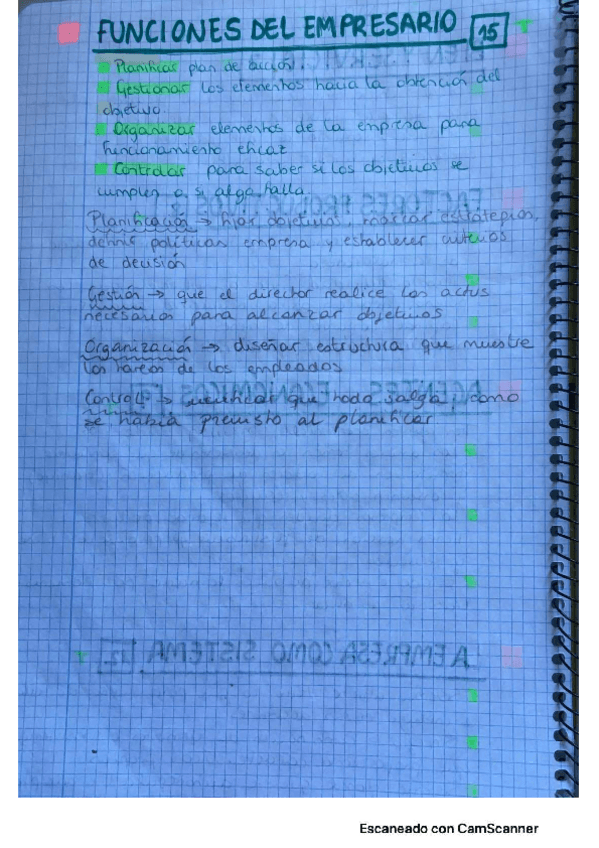 FUNCIONES DEL EMPRESARIO 15
Planificar plan de acción.
Gestionar los elementos hacia la obtención del
objetivo
Organizar elementos de la empresa para
funcionamiento eficaz
Controlar para saber si los objetivos se
cumplen o si algo falla.
Planificación → fijar objetivos, marcar estrategias,
definir políticas empresa y establecer criterios
de decisión
Gestión → que el director realice los actos
necesarios para alcanzar objetivos
Organización → diseñar estructura que muestre
las tareas de los empleados
Control → verificar que todo salga como
se había previsto al planificar
A EMPRESA COMO SISTEMA 12
Escaneado con CamScanner